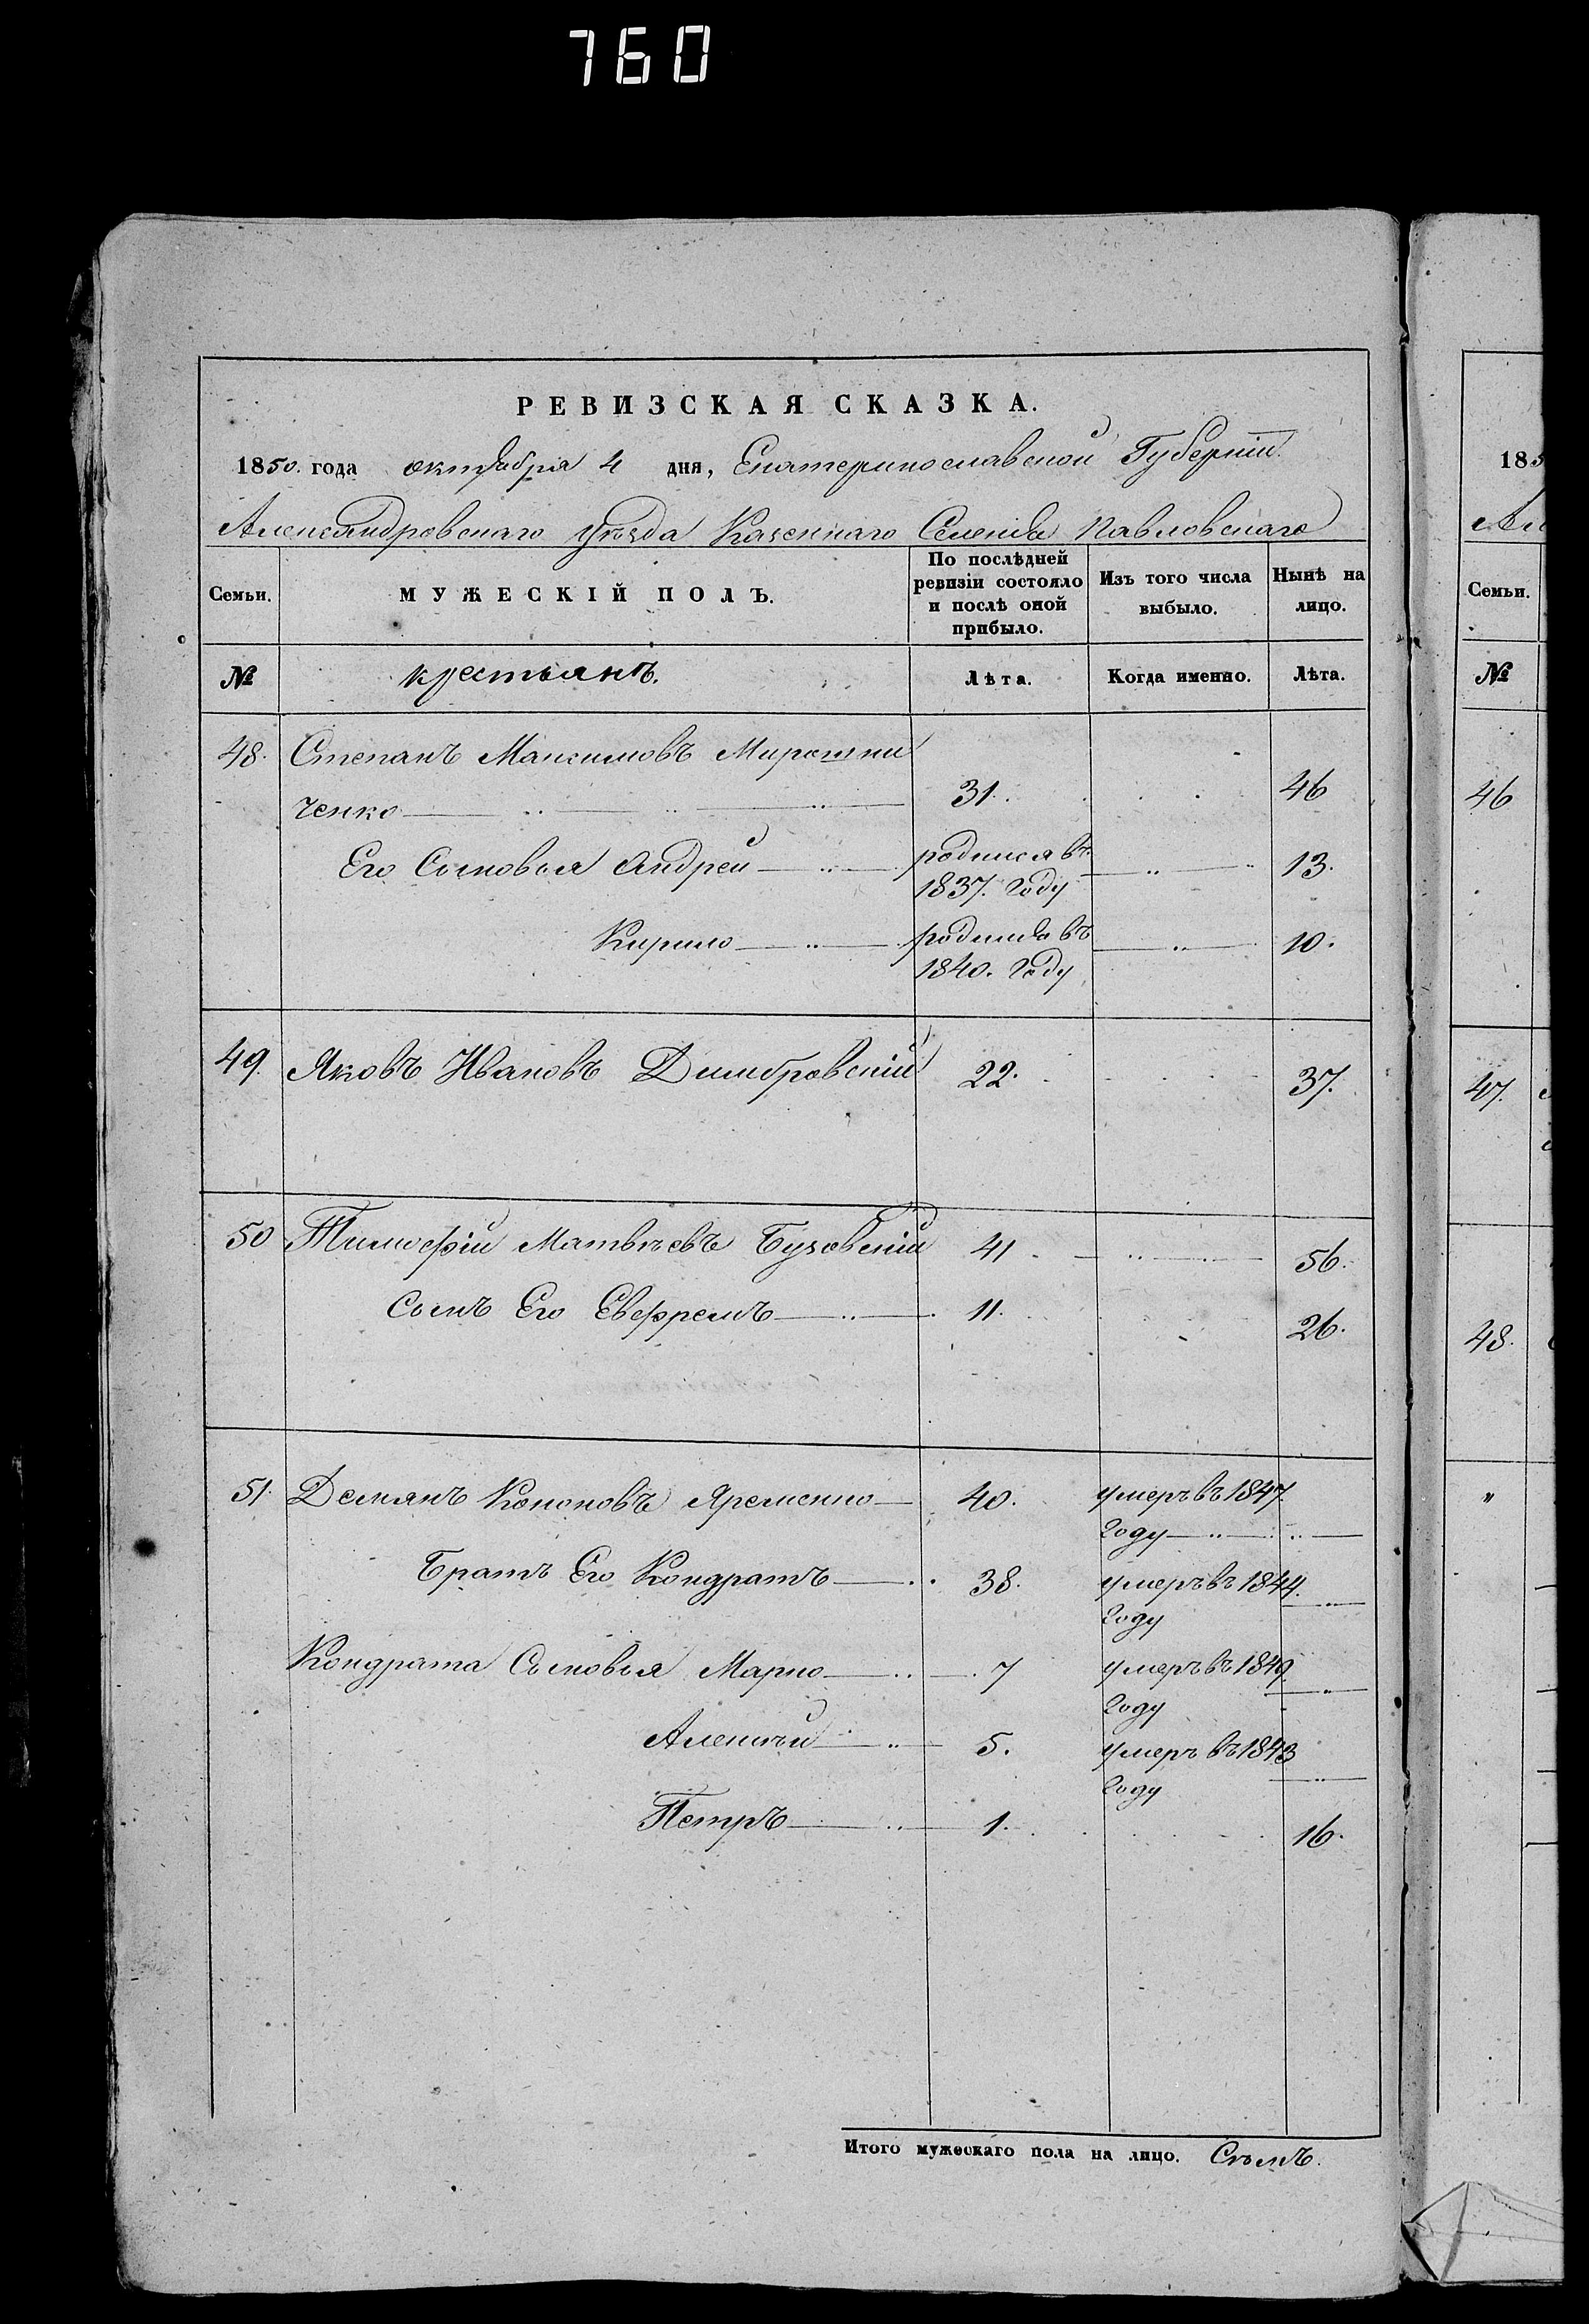 760
РЕВИЗСКАЯ СКАЗКА.
1850. года октября 4 дня, Екатеринославской Губерніи
Александровскаго уѣзда Казеннаго Селенія Павловскаго
Семьи. МУЖЕСКІЙ ПОЛЪ. По послѣдней ревизіи состояло и послѣ оной прибыло. Изъ того числа выбыло. Нынѣ на лицо.
№ крестьянъ. Лѣта. Когда именно. Лѣта.
48. Степанъ Максимовъ Мирошни
ченко 31. 46
Его Сыновья Андрей родился въ 1837. Году 13.
Кирило родился въ 1840. Году 10.
49. Яковъ Ивановъ Домбровскій 22. 37.
50 Тимофій Матвѣевъ Бузовскій 41. 56.
Сынъ Его Евфремъ 11. 26.
51. Демянъ Кононовъ Яременко 40. умеръ въ 1847. Году
Братъ Его Кондратъ 38. умеръ въ 1844. Году
Кондрата Сыновья Марко 7 умеръ въ 1849. Году
Алексѣй 5. умеръ въ 1843 Году
Петръ 1. 16.
Итого мужескаго пола на лицо. Сѣмъ.
185
Ал
Семьи.
№
46
47.
48.
"